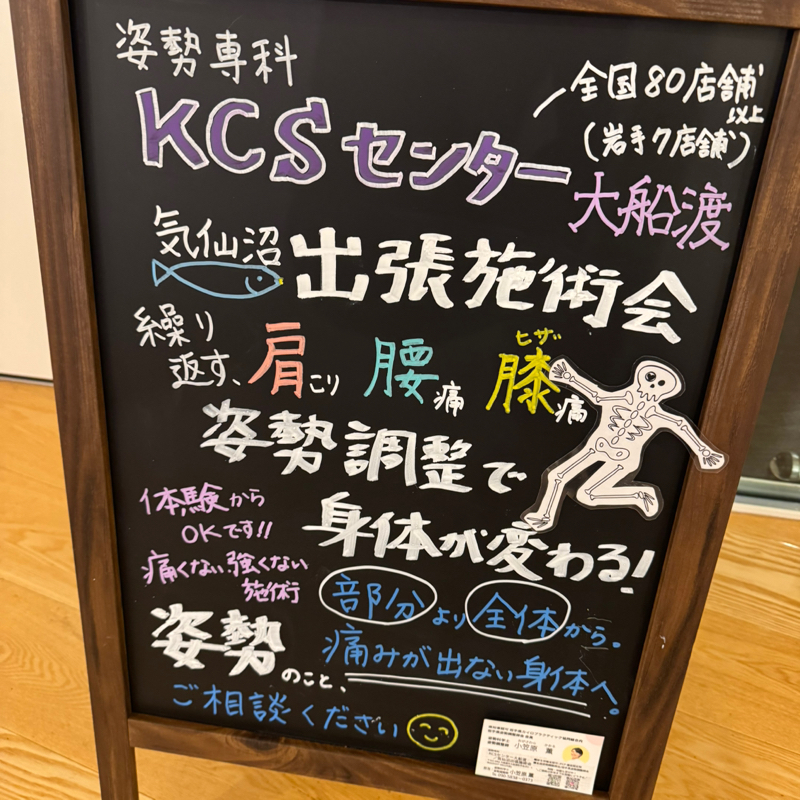 姿勢専科
KCSセンター
全国80店舗以上
(岩手7店舗)
大船渡
気仙沼
出張施術会
繰り返す、
肩こり 腰痛 膝痛
ヒザ
姿勢調整で
身体が変わる!
体験から
OKです!!
痛くない強くない
施術
部分より全体から。
痛みが出ない身体へ。
姿勢のこと、
ご相談ください
小笠原 薫